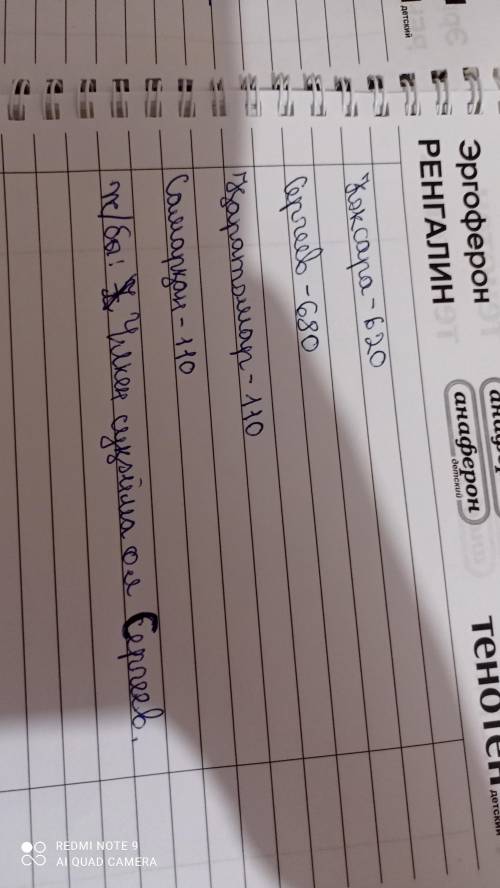 детский
Эргоферон
РЕНГАЛИН
анаферон
детский
тенотен
детский
Көксара - 620
Сергеев - 680
Қаратомар - 110
Самарқан - 110
ж/бы: Үлкен суқойма ол Сергеев.
REDMI NOTE 9
AI QUAD CAMERA